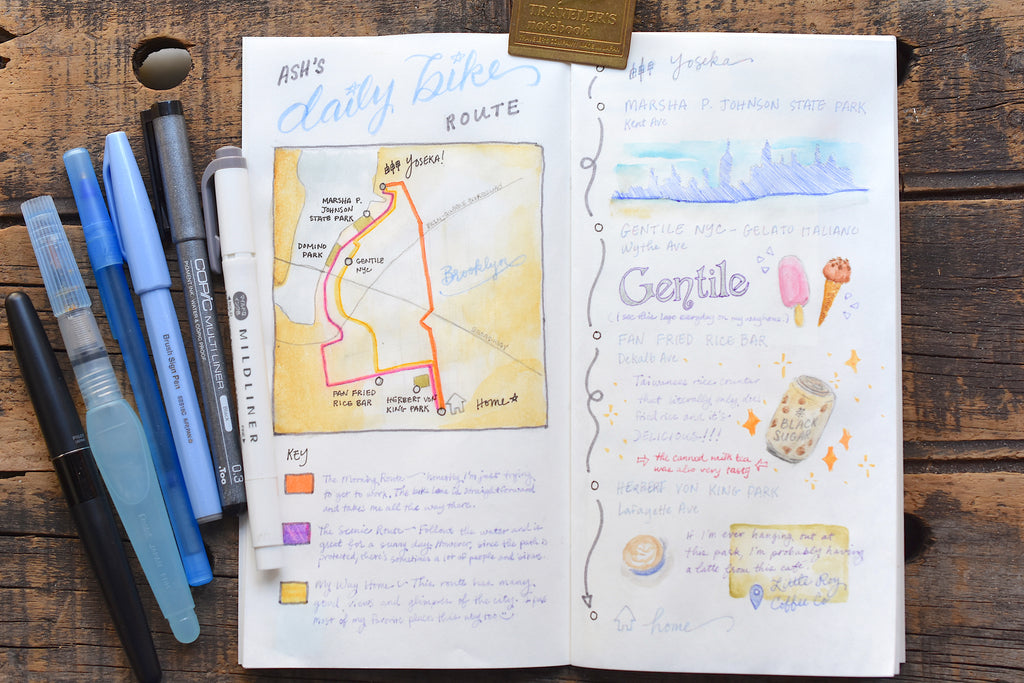 TRAVELER'S
notebook
ASH'S
daily bike
ROUTE
YOSEKA!
MARSHA P.
JOHNSON
STATE PARK
DOMINO
PARK
GENTILE
NYC
Brooklyn
BROADWAY
FAN FRIED
RICE BAR
HERBERT VON
KING PARK
Home
KEY
The Morning Route - honestly I'm just trying
to get to work. The bike lane is straightforward
and takes me all the way there.
The Scenic Route - Follows the water and is
great for a sunny day. However, since the path is
protected, there's sometimes a lot of people and
My Way Home - This route has many
good and glimpses of the city.
most of my favorite places this way too
Yoseka
MARSHA P. JOHNSON STATE PARK
Kent Ave
GENTILE NYC - GELATO ITALIANO
Wythe Ave
Gentile
(I see this logo everyday on my way home.)
FAN FRIED RICE BAR
DeKalb Ave
Taiwanese rice counter
that literally only does
fried rice and it's
DELICIOUS!!!
the canned milk tea
was also very tasty
BLACK
SUGAR
HERBERT VON KING PARK
Lafayette Ave
If I'm ever hanging out at
this park, I'm probably having
a latte from this cafe.
Little Roy
Coffee Co
home
Brush Sign Pen
COPIC MULTI LINER
0.3
.Too
MILDLINER